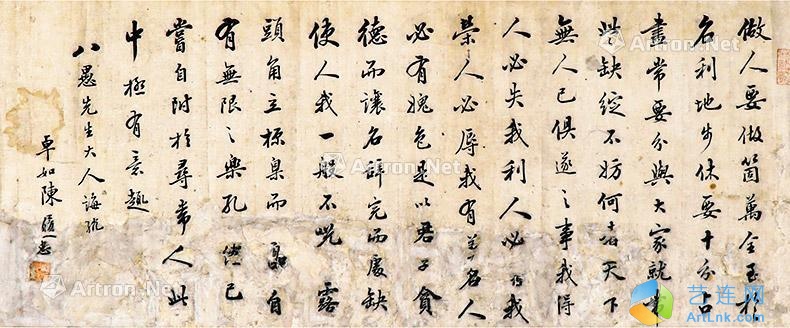 做人要做箇萬全至於
名利地步休要十分占
盡常要分與大家就
些缺綻不妨何者天下
無人已俱遂之事我得
人必失我利人必我
榮人必辱我有美名人
必有媿色是以君子貪
德而讓名辭完而處缺
使人我一般不露
頭角立標臬而自
有無限之樂孔己
嘗自附於尋常人此
中極有意趣
八愚先生大人誨
卓如陳
Artron.Net
Artron.Net
Artron.Net
Artron.Net
Artron.Net
艺连网
ArtLnk.com